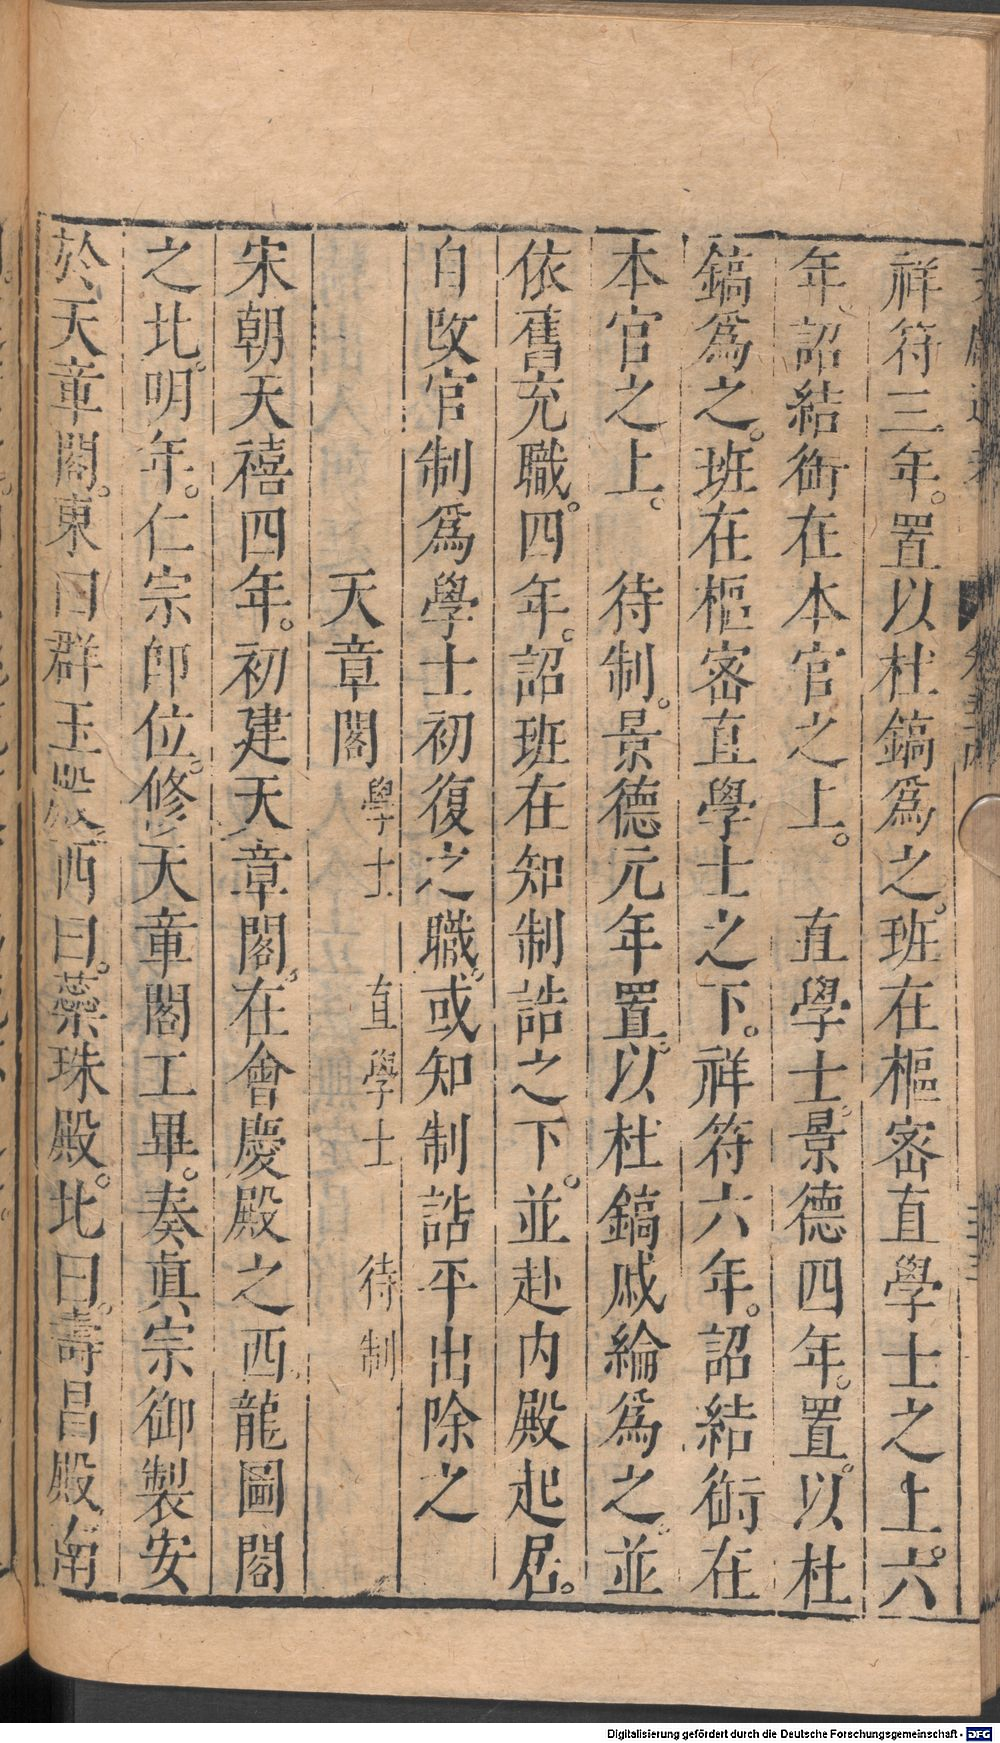 祥符三年。置以杜鎬爲之。班在樞密直學士之上。六
年。詔結銜在本官之上。　直學士。景德四年。置。以杜
鎬爲之。班在樞密直學士之下。祥符六年。詔結銜在
本官之上。　待制。景德元年置。以杜鎬戚綸爲之。並
依舊充職。四年。詔班在知制誥之下。並赴内殿起居。
自改官制爲學士初復之職。或知制誥平出除之
天章閣　學士　直學士　待制
宋朝天禧四年。初建天章閣。在會慶殿之西。龍圖閣
之北。明年。仁宗卽位。修天章閣工畢。奏眞宗御製安
於天章閣。東曰群玉殿西曰。蘂珠殿。北曰。壽昌殿。南
Digitalisierung gefördert durch die Deutsche Forschungsgemeinschaft - DFG